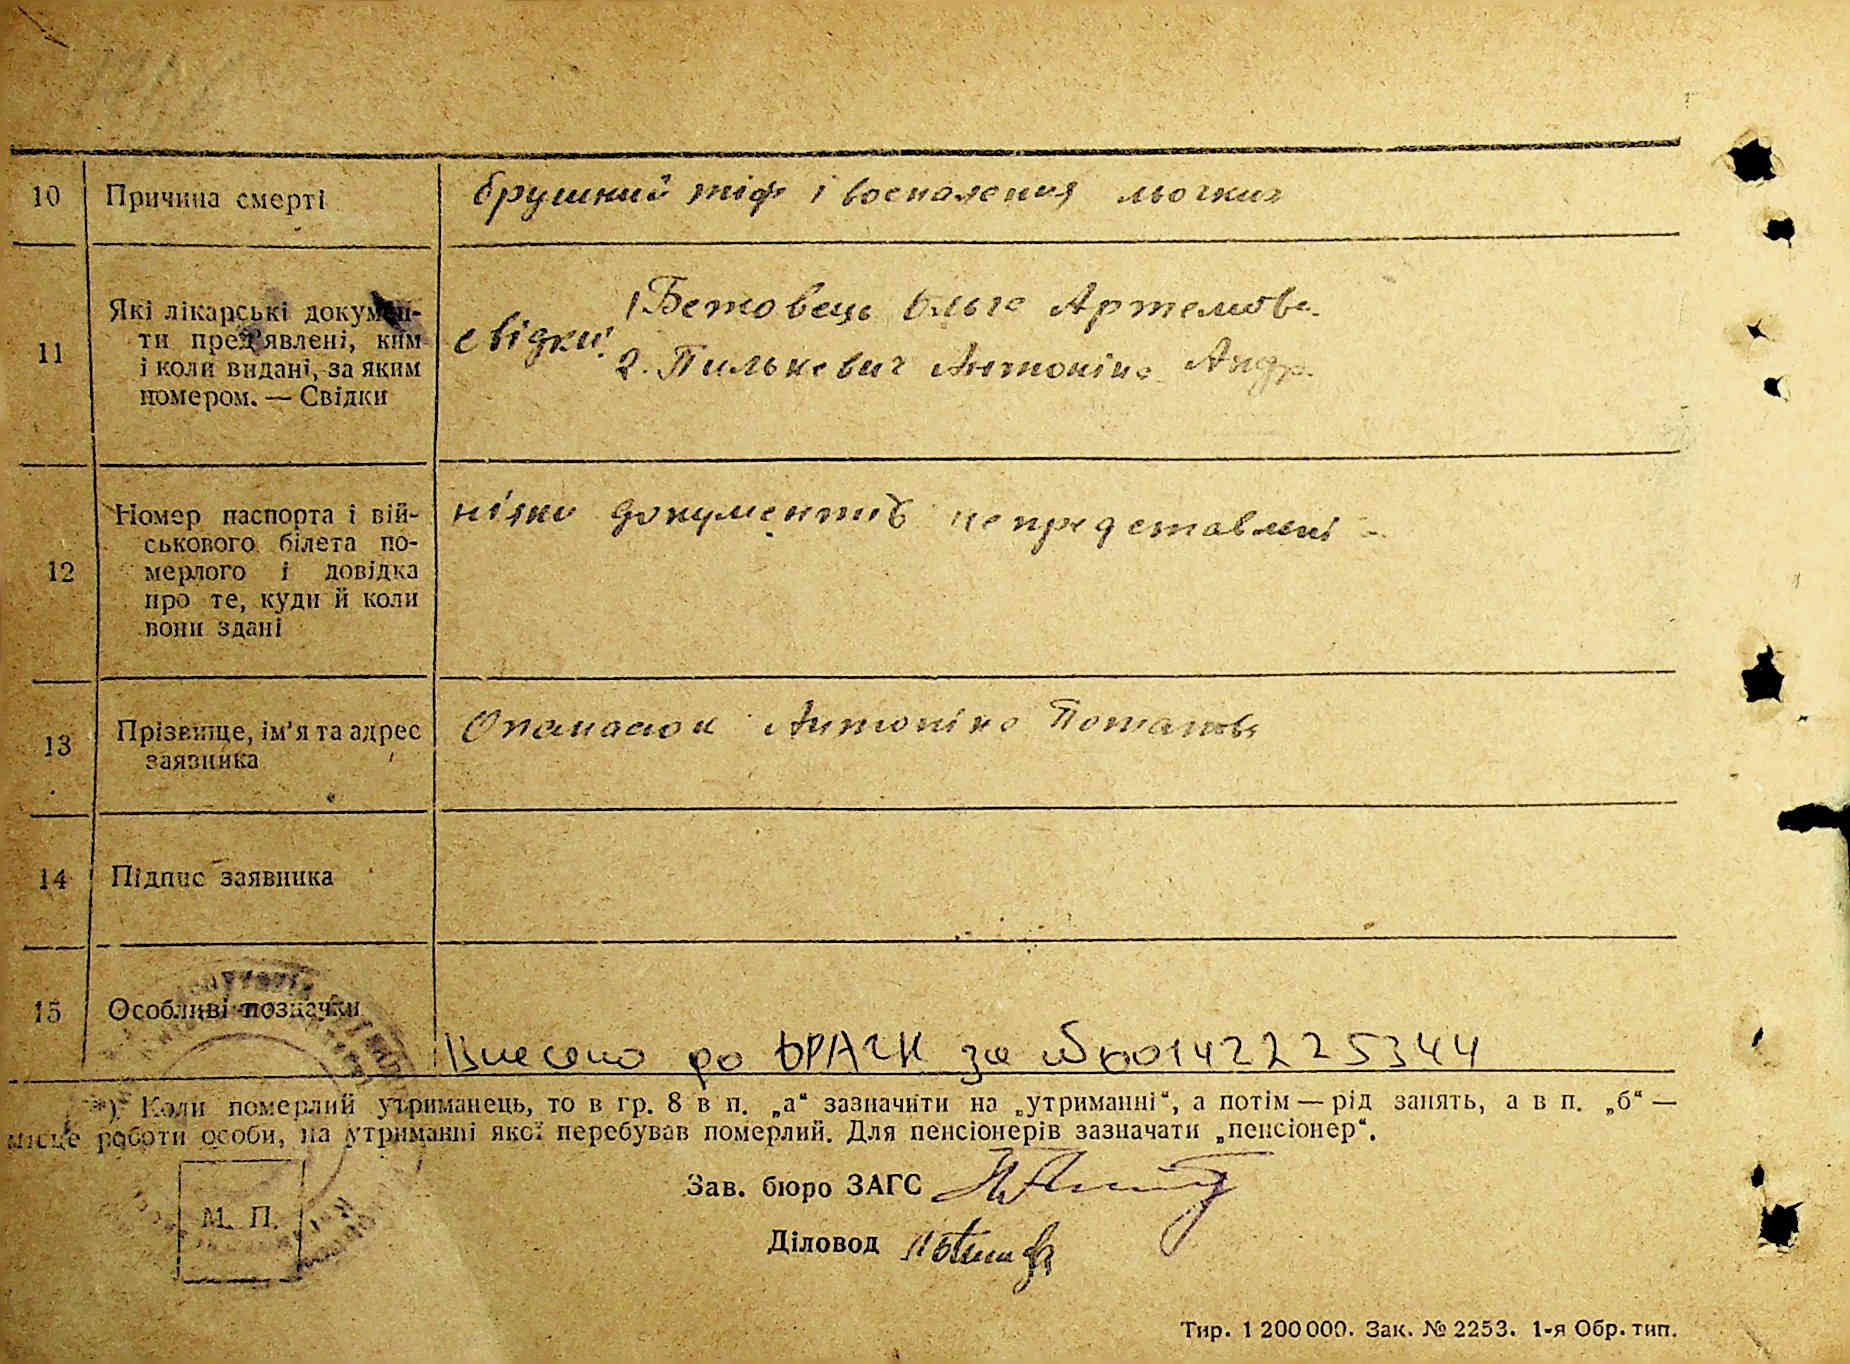 10 Причина смерті брушний тіф і воспаления льочких
11 Які лікарські докумен-
ти пред'явлені, ким
і коли видані, за яким
номером. — Свідки
свідки: 1 Бетовець Ольга Артемовн.
2. Пилькевич Антоніна Андр.
12 Номер паспорта і вій-
ськового білета по-
мерлого і довідка
про те, куди й коли
вони здані
ніяки документів непредставлені
13 Прізвище, ім'я та адрес
заявника
Опанасюк Антоніна Потапов
14 Підпис заявника
15 Особливі позначки
Внесено до ДРАЦС за № 00142225344
*) Коли померлий утриманець, то в гр. 8 в п. „а“ зазначити на „утриманні“, а потім — рід занять, а в п. „б“ —
місце роботи особи, на утриманні якої перебував померлий. Для пенсіонерів зазначати „пенсіонер“.
Зав. бюро ЗАГС
М. П.
Діловод
Тир. 1 200 000. Зак. № 2253. 1-я Обр. тип.